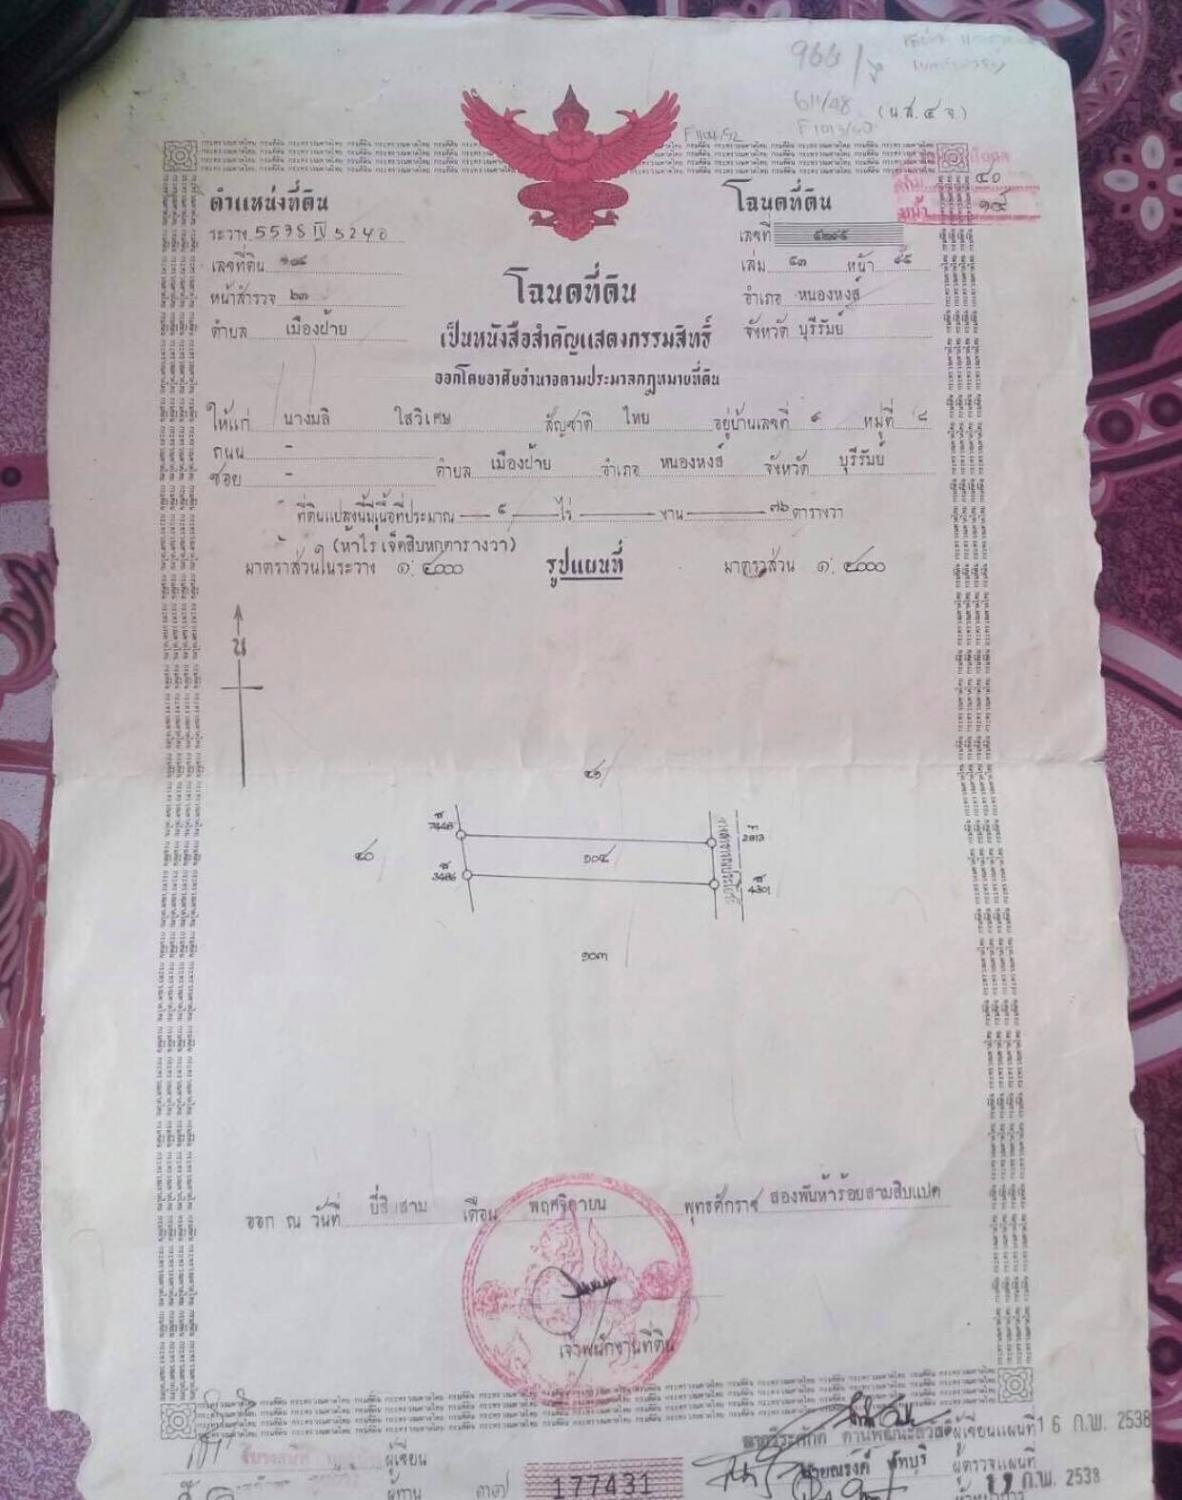 966/
611/48
(น.ส.๔ จ.)
F1104/52
F1013/50
ตำแหน่งที่ดิน
โฉนดที่ดิน
๔๐
หน้า ๑๙
ระวาง 5538 IV 5240
เลขที่
เลขที่ดิน ๑๐๔
เล่ม ๕๓ หน้า ๔๕
หน้าสำรวจ ๖๓
โฉนดที่ดิน
อำเภอ หนองหงส์
ตำบล เมืองฝ้าย
เป็นหนังสือสำคัญแสดงกรรมสิทธิ์
จังหวัด บุรีรัมย์
ออกโดยอาศัยอำนาจตามประมวลกฎหมายที่ดิน
ให้แก่ นางมลิ ใสวิเศษ สัญชาติ ไทย อยู่บ้านเลขที่ หมู่ที่ ๘
ถนน –
ซอย – ตำบล เมืองฝ้าย อำเภอ หนองหงส์ จังหวัด บุรีรัมย์
ที่ดินแปลงนี้มีเนื้อที่ประมาณ ๕ ไร่ งาน ๗๖ ตารางวา
(ห้าไร่ เจ็ดสิบหกตารางวา)
มาตราส่วนในระวาง ๑:๔๐๐๐
รูปแผนที่
มาตราส่วน ๑:๔๐๐๐
น
๔๑
7448
2813
๔๐
๑๐๔
3486
4301
๑๐๓
ออก ณ วันที่ ยี่สิบสาม เดือน พฤศจิกายน พุทธศักราช สองพันห้าร้อยสามสิบแปด
เจ้าพนักงานที่ดิน
ผู้เขียนแผนที่ 16 ก.พ. 2538
ผู้เขียน
นายณรงค์ ผู้ตรวจแผนที่
ผู้ทาน
177431
ก.พ. 2538